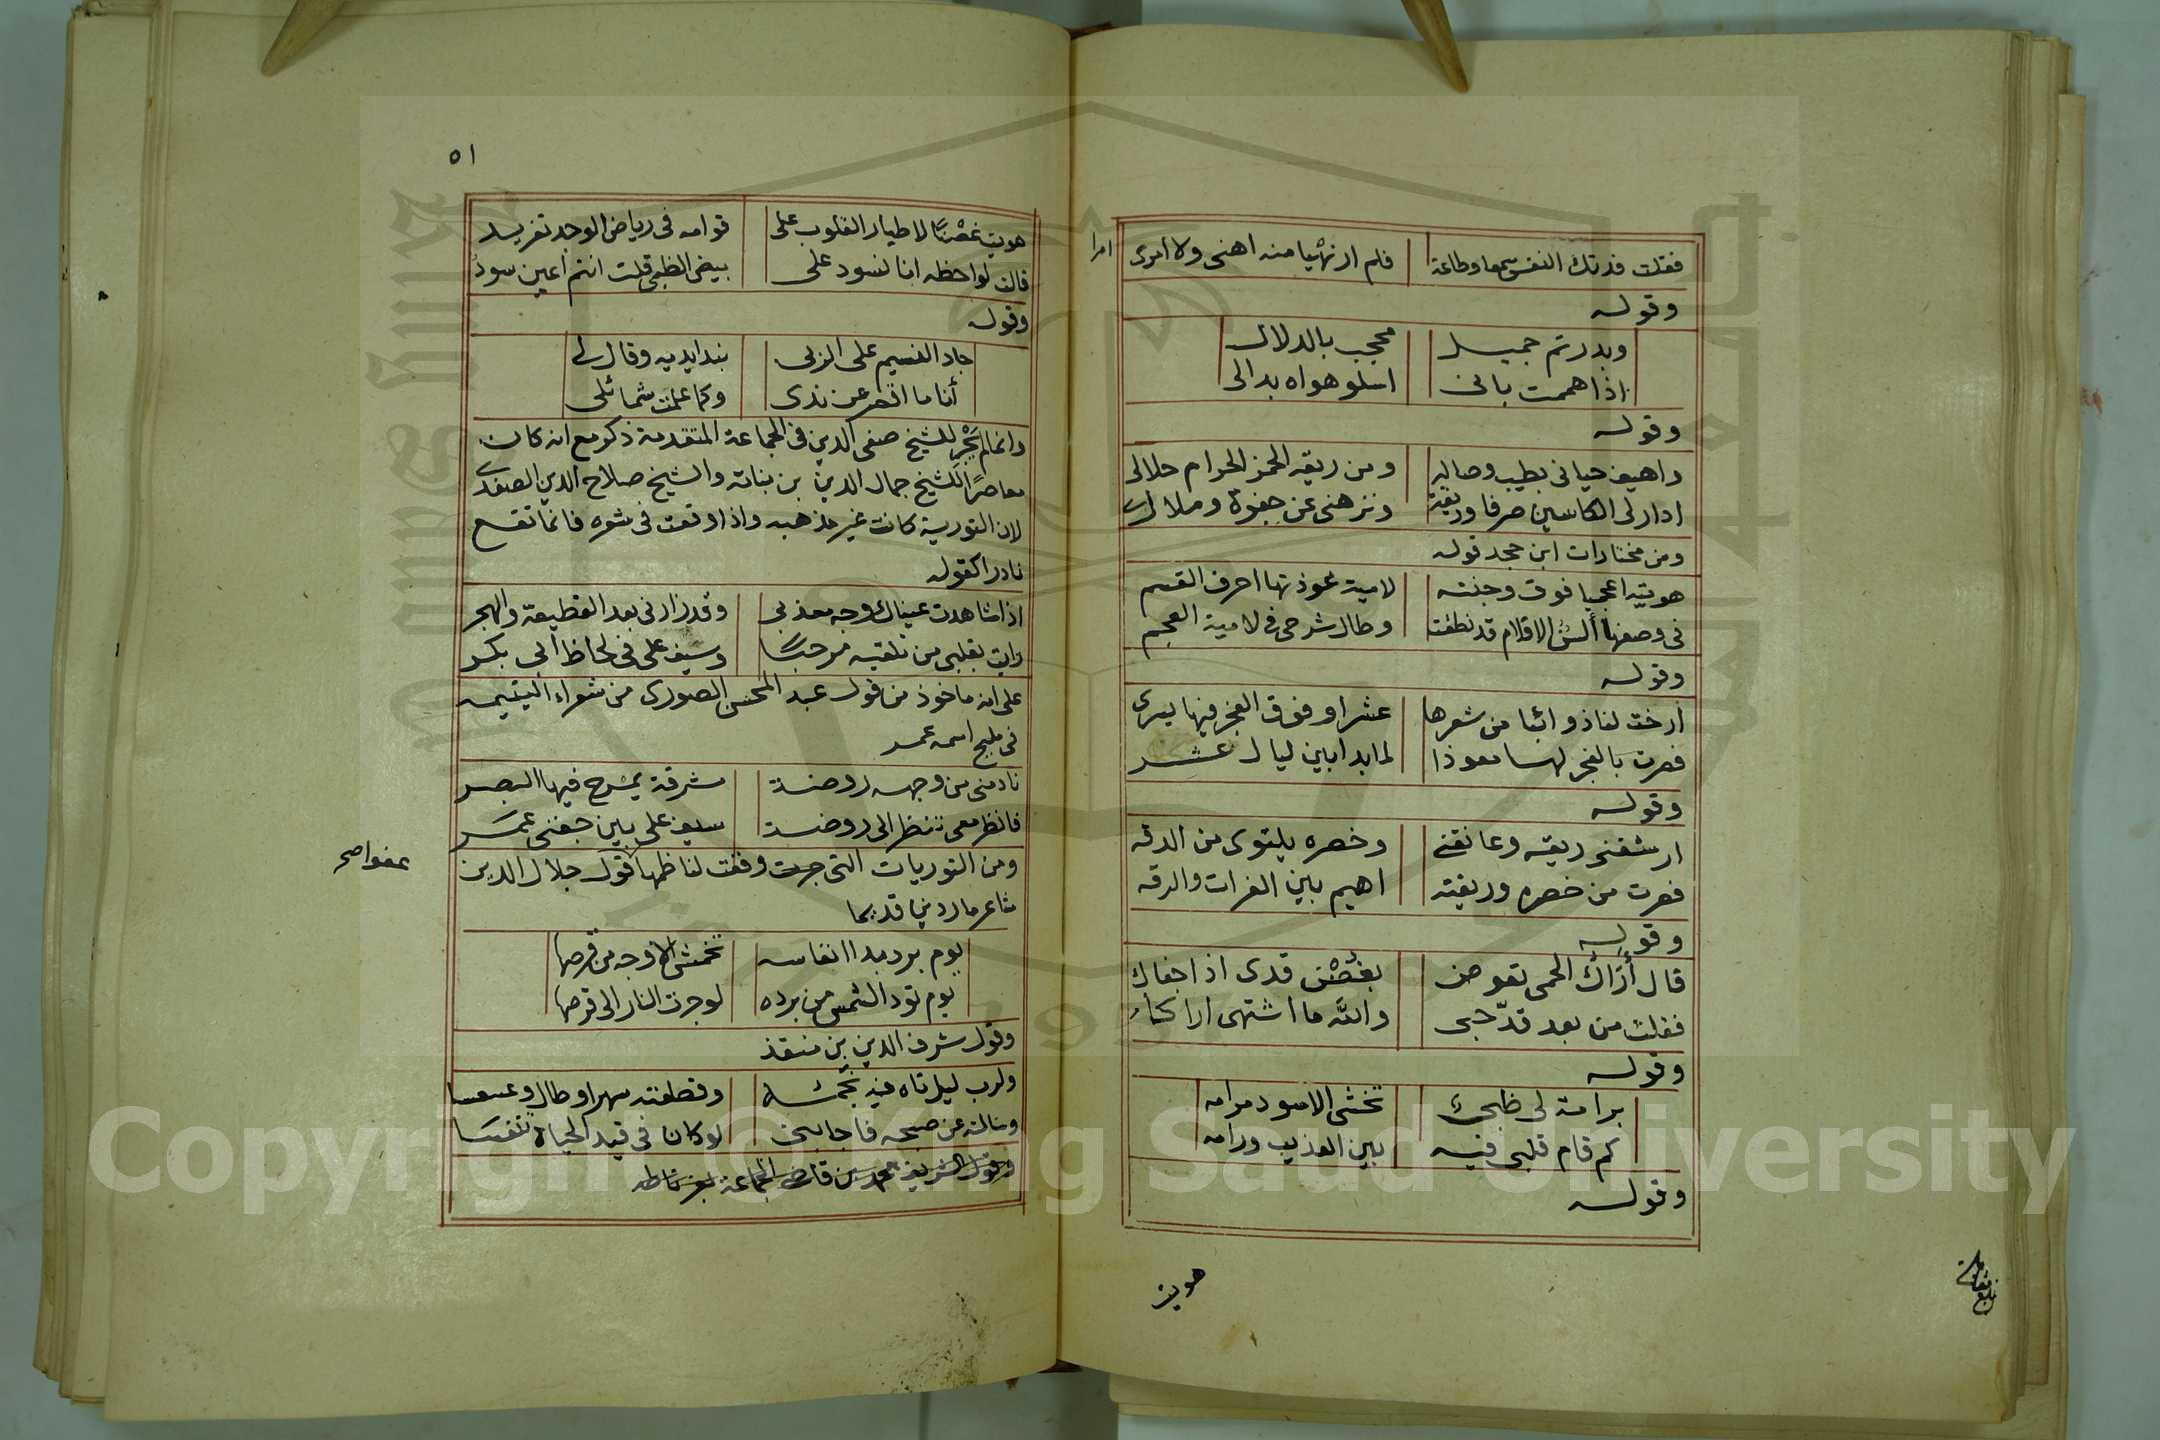 فقلت فدتك النفس سمعا وطاعة فلم ار نهيا منه اهنى ولا امرى
امرا
وقوله
وبدر تم جميل محجب بالدلال
اذا هممت بانى اسلو هواه بدالى
وقوله
واهيف حيانى بطيب وصاله ومن ريقه الخمر الحرام حلالى
ادار لى الكاسين صرفا وريقة ونزهنى عن جفوة وملال
ومن مختارات ابن حجر قوله
هويته اعجميا فوق وجنته لامية عوذتها احرف القسم
فى وصفها ألسن الاقلام قد نطقت وطال شرحى فى لامية العجم
وقوله
ارخت لنا ذوائبا من شعرها عشرا وفرق الفجر فيها يسرى
فصرت بالفجر لها معوذا لما بدا بين ليال عشر
وقوله
ارشفنى ريقه وعانقنى وخصره يلتوى من الدقه
فصرت من خصره وريقته اهيم بين الفرات والرقه
وقوله
قال أراك الحمى تعوض بغصن قدى اذا جفاك
فقلت من بعد قد حبى والله ما اشتهى اراكا
وقوله
برامة لى ظبى تخشى الاسود مرامه
كم قام قلبى فيه بين العذيب ورامه
وقوله
هويت
٥١
هويت غصنًا لاطيار القلوب على قوامه فى رياض الوجد تغريد
قالت لواحظه انا نسود على بيض الظبى قلت انتم أعين سود
وقوله
جاد النسيم على الربى بندا يديه وقال لى
أنا ما اقصر عن ندى وكما علمت شمائلى
وانما لم يجر للشيخ صفى الدين فى الجماعة المتقدمة ذكر مع انه كان
معاصرًا للشيخ جمال الدين بن نباتة والشيخ صلاح الدين الصفدى
لان التورية كانت غير مذهبه واذا وقعت فى شعره فانما تقع
نادرا كقوله
اذا شاهدت عيناك وجه معذبى وقد زارنى بعد القطيعة والهجر
رايت بقلبى من تلقيه مرحبًا وسيف على فى لحاظ أبى بكر
على انه ماخوذ من قول عبد المحسن الصورى من شعراء اليتيمه
فى مليح اسمه عمر
نادمنى من وجهه روضة مشرقة يمرح فيها البصر
فانظر معى تنظر الى روضة سيف على بين جفنى عمر
ومن التوريات التى جرت وقعت لناظمها قول جلال الدين
عفوا صح
شاعر ماردين قديما
يوم برد بدا انفاسه تخمش الاوجه من قرصها
يوم تود الشمس من برده لو جرت النار الى قرصها
وقول شرف الدين بن منقذ
ولرب ليل تاه فيه نجمه وقطعته سهرا وطال وعسعسا
وسالته عن صبحه فاجابنى لو كان فى قيد الحياة تنفسا
وقول الشريف محمد بن قاضى الجماعة بغرناطه